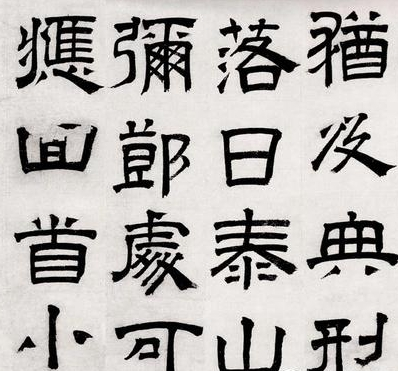 猶及典刑
落日泰山
彌鄧處可
應回首小